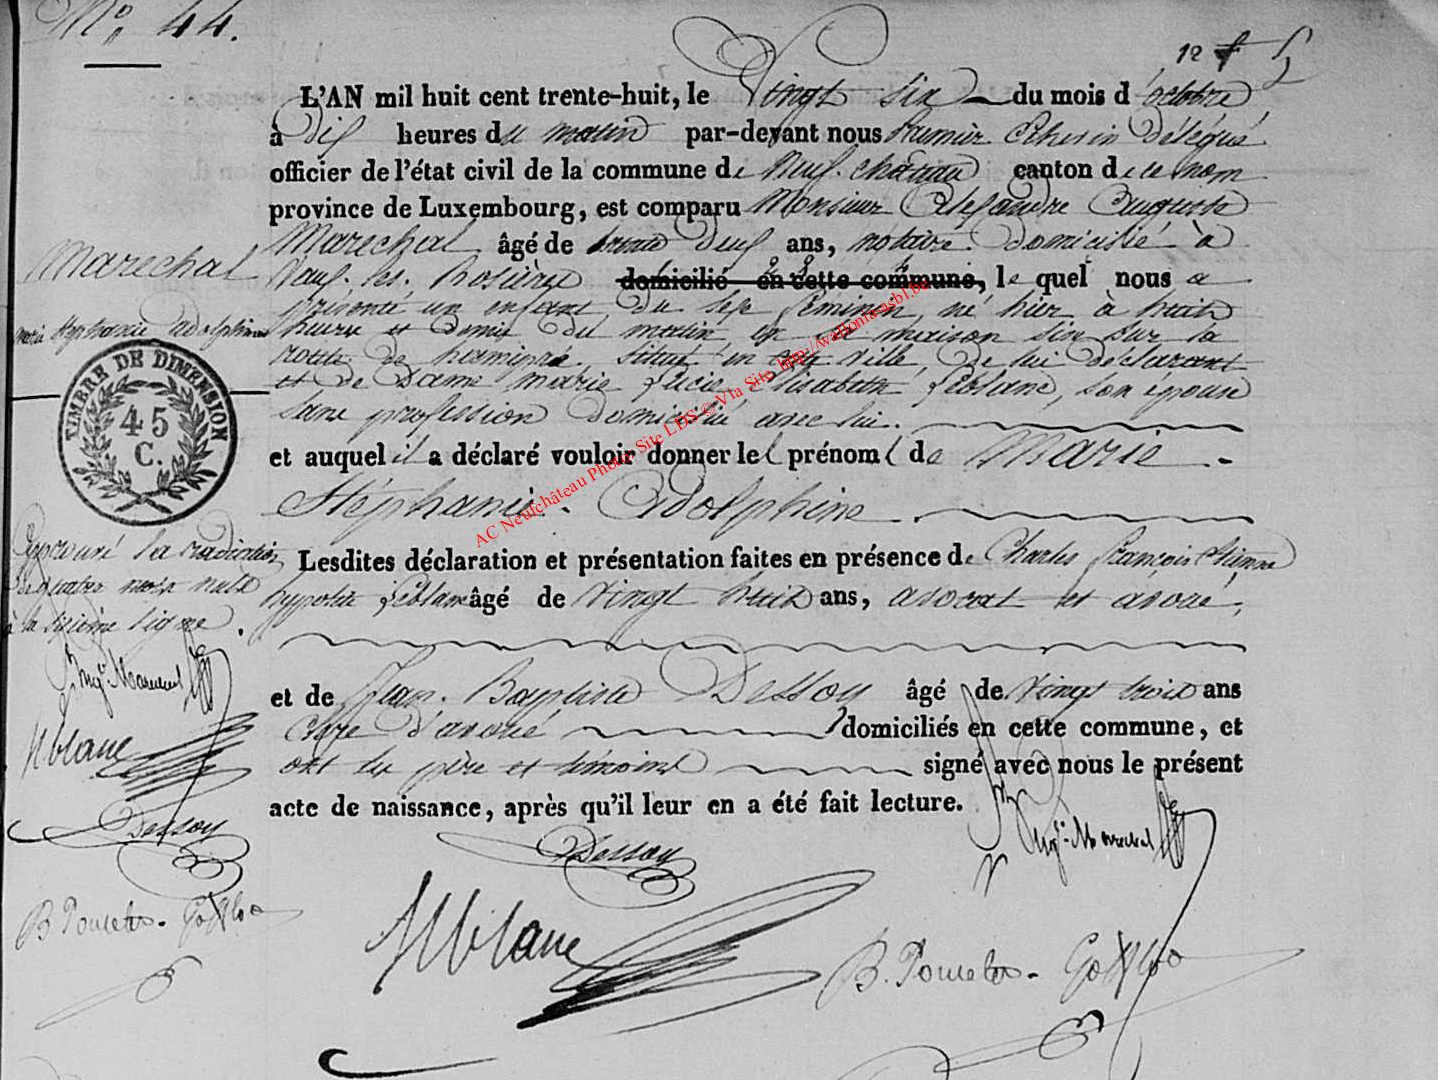 N° 44.
12
L'AN mil huit cent trente-huit, le Vingt six du mois d'octobre
à dix heures du matin par-devant nous premier Echevin délégué
officier de l'état civil de la commune de Neufchateau canton de ce nom
province de Luxembourg, est comparu Monsieur Alexandre Auguste
Marechal âgé de trente deux ans, notaire domicilié à
Vaux-les-Rosières domicilié en cette commune, lequel nous a
présenté un enfant du sexe féminin, né hier à huit
heures et demie du matin en sa maison sise sur la
route de hamipré, située en cette ville, de lui déclarant
et de Dame marie Lucie Elisabeth Leblanc, son épouse
sans profession domiciliée avec lui.
et auquel il a déclaré vouloir donner les prénoms de Marie-
Stéphanie-Adolphine.
Lesdites déclaration et présentation faites en présence de Charles françois Etienne
hypolite Leblanc âgé de vingt huit ans, avocat et avoué,
et de Jean-Baptiste Dessoy âgé de vingt trois ans
clerc d'avoué domiciliés en cette commune, et
ont les père et témoins signé avec nous le présent
acte de naissance, après qu'il leur en a été fait lecture.
Dessoy
Aug.te Marechal
Hblanc
B. Poncelet-
Marechal
marie Stéphanie adolphine
TIMBRE DE DIMENSION
45
C.
Approuvé la radiation
de quatre mots nuls
à la sixième ligne.
Aug.te Marechal
Hblanc
Dessoy
B. Poncelet-
AC Neufchâteau Photo- Site LDS © Via Site http://wallonia-asbl.be